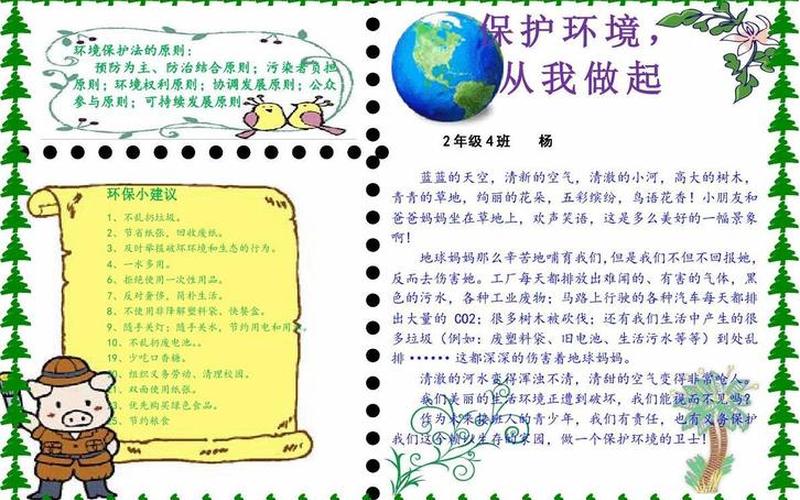 环境保护法的原则：
预防为主、防治结合原则；污染者负担
原则；环境权利原则；协调发展原则；公众
参与原则；可持续发展原则
保护环境，
从我做起
2年级4班 杨
环保小建议
1、不乱扔垃圾。
2、节省纸张，回收废纸。
3、及时举报破坏环境和生态的行为。
4、一水多用。
6、拒绝使用一次性用品。
7、反对奢侈，简朴生活。
8、不使用非降解塑料袋、快餐盒。
9、随手关灯；随手关水，节约用电和用
10、不乱扔废电池。
15、少吃口香糖。
20、组织义务劳动、清理校园。
21、双面使用纸张。
23、优先购买绿色食品。
25、节约粮食
蓝蓝的天空，清新的空气，清澈的小河，高大的树木，
青青的草地，绚丽的花朵，五彩缤纷，鸟语花香！小朋友和
爸爸妈妈坐在草地上，欢声笑语，这是多么美好的一幅景象
啊！
地球妈妈那么辛苦地哺育我们,但是我们不但不回报她,
反而去伤害她。工厂每天都排放出难闻的、有害的气体，黑
色的污水，各种工业废物；马路上行驶的各种汽车每天都排
出大量的 CO2；很多树木被砍伐；还有我们生活中产生的很
多垃圾（例如：废塑料袋、旧电池、生活污水等等）到处乱
排······这都深深的伤害着地球妈妈。
清澈的河水变得浑浊不清，清甜的空气变得非常呛人。
我们美丽的生活环境正遭到破坏，我们能视而不见吗？
作为未来接班人的青少年，我们有责任，也有义务保护
我们这个赖以生存的家园，做一个保护环境的卫士！